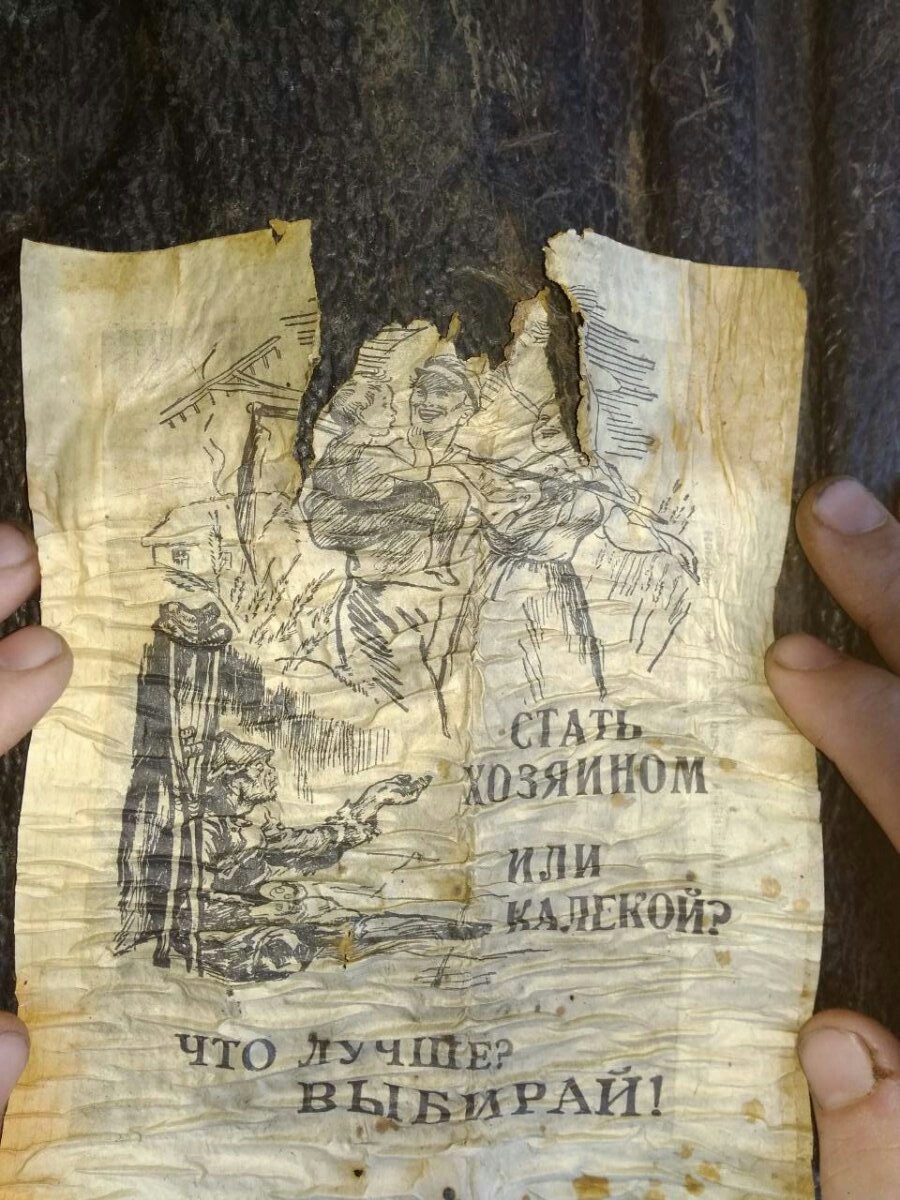 СТАТЬ
ХОЗЯИНОМ
ИЛИ
КАЛЕКОЙ?
ЧТО ЛУЧШЕ?
ВЫБИРАЙ!